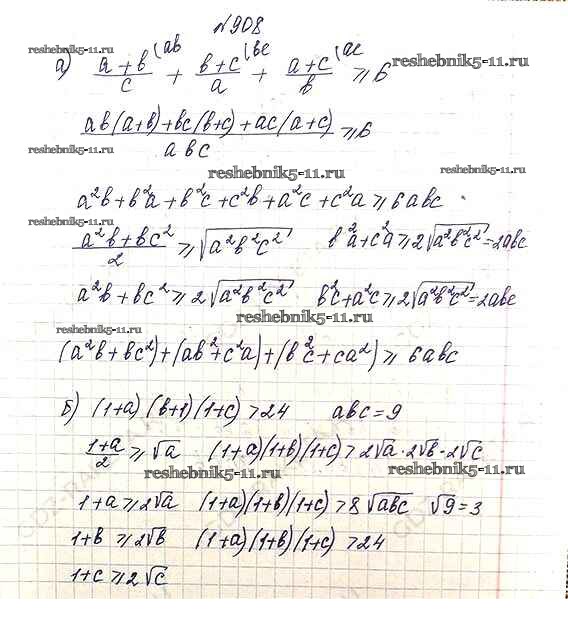 №908
а) (a+b)/c (ab + (b+c)/a (bc + (a+c)/b (ac ≥ 6
reshebnik5-11.ru reshebnik5-11.ru
(ab(a+b)+bc(b+c)+ac(a+c))/abc ≥ 6
reshebnik5-11.ru reshebnik5-11.ru
reshebnik5-11.ru
a²b+b²a+b²c+c²b+a²c+c²a ≥ 6abc
reshebnik5-11.ru
(a²b+bc²)/2 ≥ √(a²b²c²) b²a+c²a ≥ 2√(a²b²c²) = 2abc
reshebnik5-11.ru
a²b+bc² ≥ 2√(a²b²c²) b²c+a²c ≥ 2√(a²b²c²) = 2abc
reshebnik5-11.ru
reshebnik5-11.ru
(a²b+bc²)+(ab²+c²a)+(b²c+ca²) ≥ 6abc
reshebnik5-11.ru reshebnik5-11.ru
б) (1+a)(b+1)(1+c) > 24 abc=9
(1+a)/2 ≥ √a (1+a)(1+b)(1+c) > 2√a·2√b·2√c
reshebnik5-11.ru reshebnik5-11.ru
1+a ≥ 2√a (1+a)(1+b)(1+c) > 8√(abc) √9=3
1+b ≥ 2√b (1+a)(1+b)(1+c) > 24
1+c ≥ 2√c